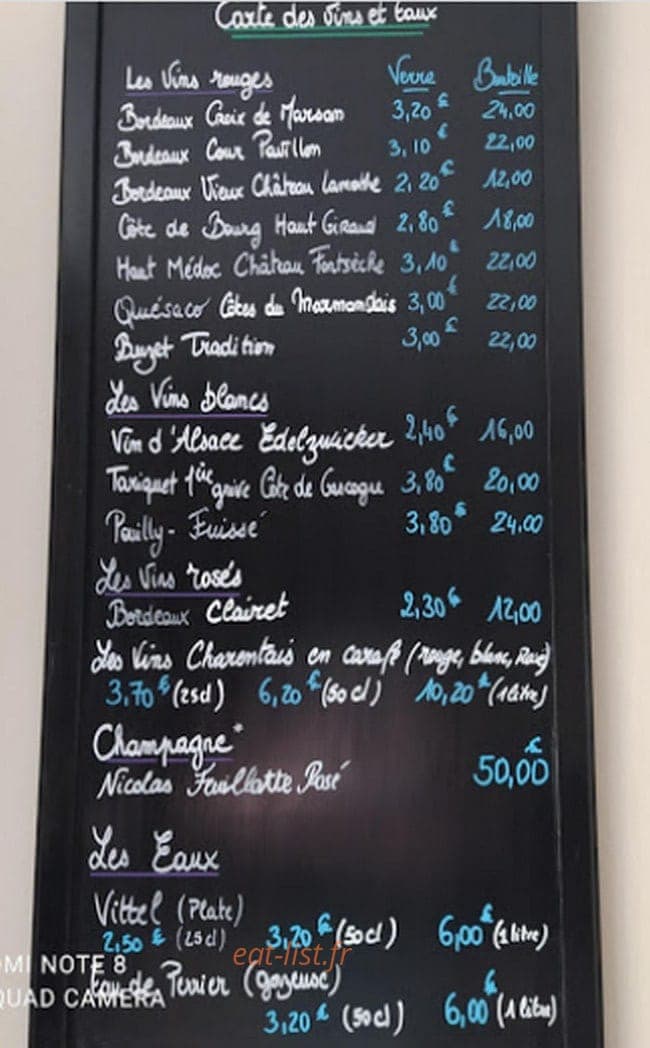 Carte des Vins et Eaux
Les Vins rouges Verre Bouteille
Bordeaux Croix de Marsan 3,20€ 24.00
Bordeaux Cour Pavillon 3,10€ 22,00
Bordeaux Vieux Château Lamothe 2,20€ 12,00
Côte de Bourg Haut Giraud 2,80€ 18,00
Haut Médoc Château Fontsèche 3,10€ 22,00
Quésaco Côtes du Marmandais 3,00€ 22,00
Buzet Tradition 3,00€ 22,00
Les Vins blancs
Vin d'Alsace Edelzwicker 2,40€ 16,00
Tariquet 1ère grive Côte de Gascogne 3,80€ 20,00
Pouilly-Fuissé 3,80€ 24.00
Les Vins rosés
Bordeaux Clairet 2,30€ 12,00
Les Vins Charentais en carafe (rouge, blanc, Rosé)
3,70€ (25cl) 6,20€ (50cl) 10,20€ (1 litre)
Champagne*
Nicolas Feuillatte Rosé 50,00€
Les Eaux
Vittel (Plate)
2,50€ (25cl) 3,20€ (50cl) 6,00€ (1 litre)
eat-list.fr
MI NOTE 8
QUAD CAMERA
Eau de Perrier (gazeuse)
3,20€ (50cl) 6,00€ (1 litre)